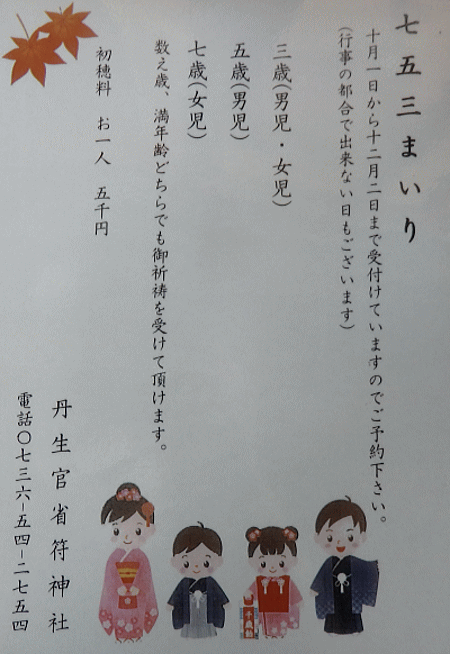 七五三まいり
十月一日から十二月二日まで受付けていますのでご予約下さい。
(行事の都合で出来ない日もございます)
三歳(男児・女児)
五歳(男児)
七歳(女児)
数え歳、満年齢どちらでも御祈祷を受けて頂けます。
初穂料 お一人 五千円
丹生官省符神社
電話〇七三六-五四-二七五四
千歳飴